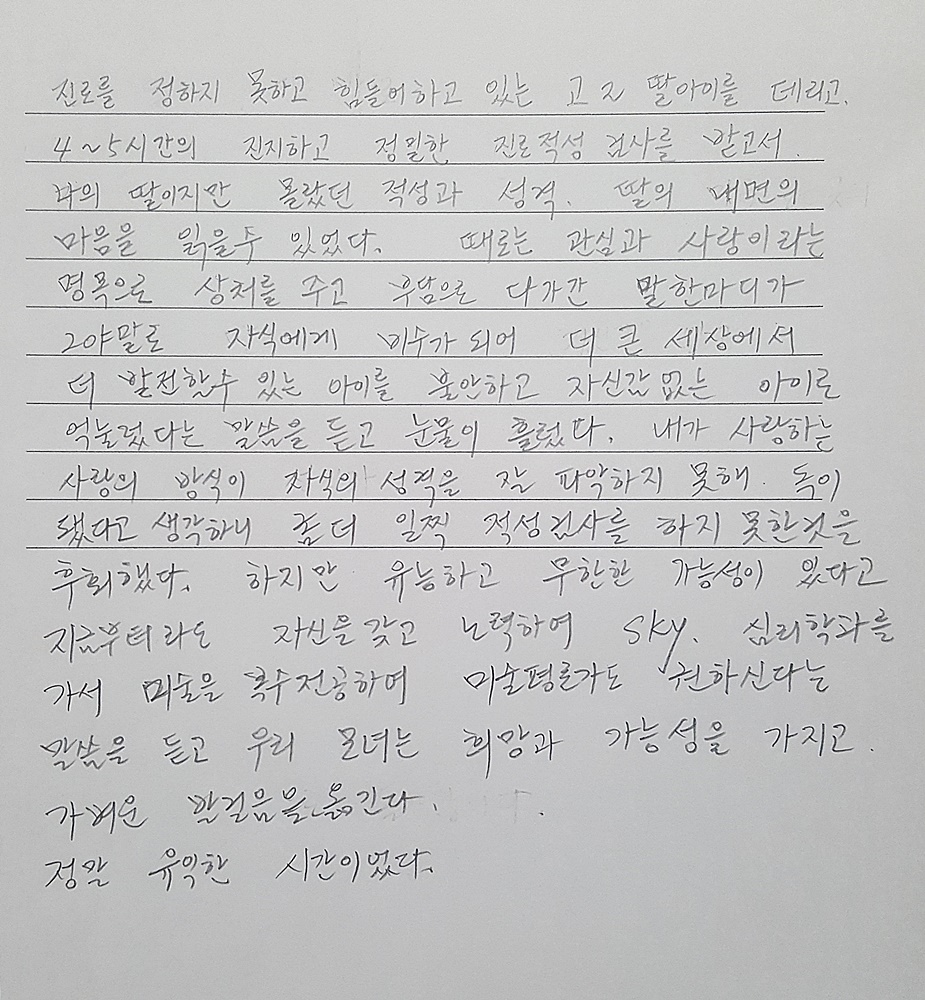 진로를 정하지 못하고 힘들어하고 있는 고2 딸아이를 데리고.
4~5시간의 진지하고 정밀한 진로적성 검사를 받고서.
나의 딸이지만 몰랐던 적성과 성격. 딸의 내면의
마음을 읽을수 있었다. 때로는 관심과 사랑이라는
명목으로 상처를 주고 우담으로 다가간 말한마디가
20야말로 자식에게 비수가 되어 더 큰 세상에서
더 발전할수 있는 아이를 불안하고 자신감없는 아이로
억눌렀다는 말씀을 듣고 눈물이 흘렀다. 내가 사랑하는
사랑의 방식이 자식의 성격을 잘 파악하지 못해. 독이
됐다고 생각하니 좀더 일찍 적성검사를 하지 못한것을
후회했다. 하지만 유능하고 무한한 가능성이 있다고
지금부터라도 자신을갖고 노력하여 SKY. 심리학과를
가서 미술을 복수전공하여 미술평론가도 권하신다는
말씀을 듣고 우리 모녀는 희망과 가능성을 가지고.
가벼운 발걸음을 옮긴다.
정말 유익한 시간이었다.